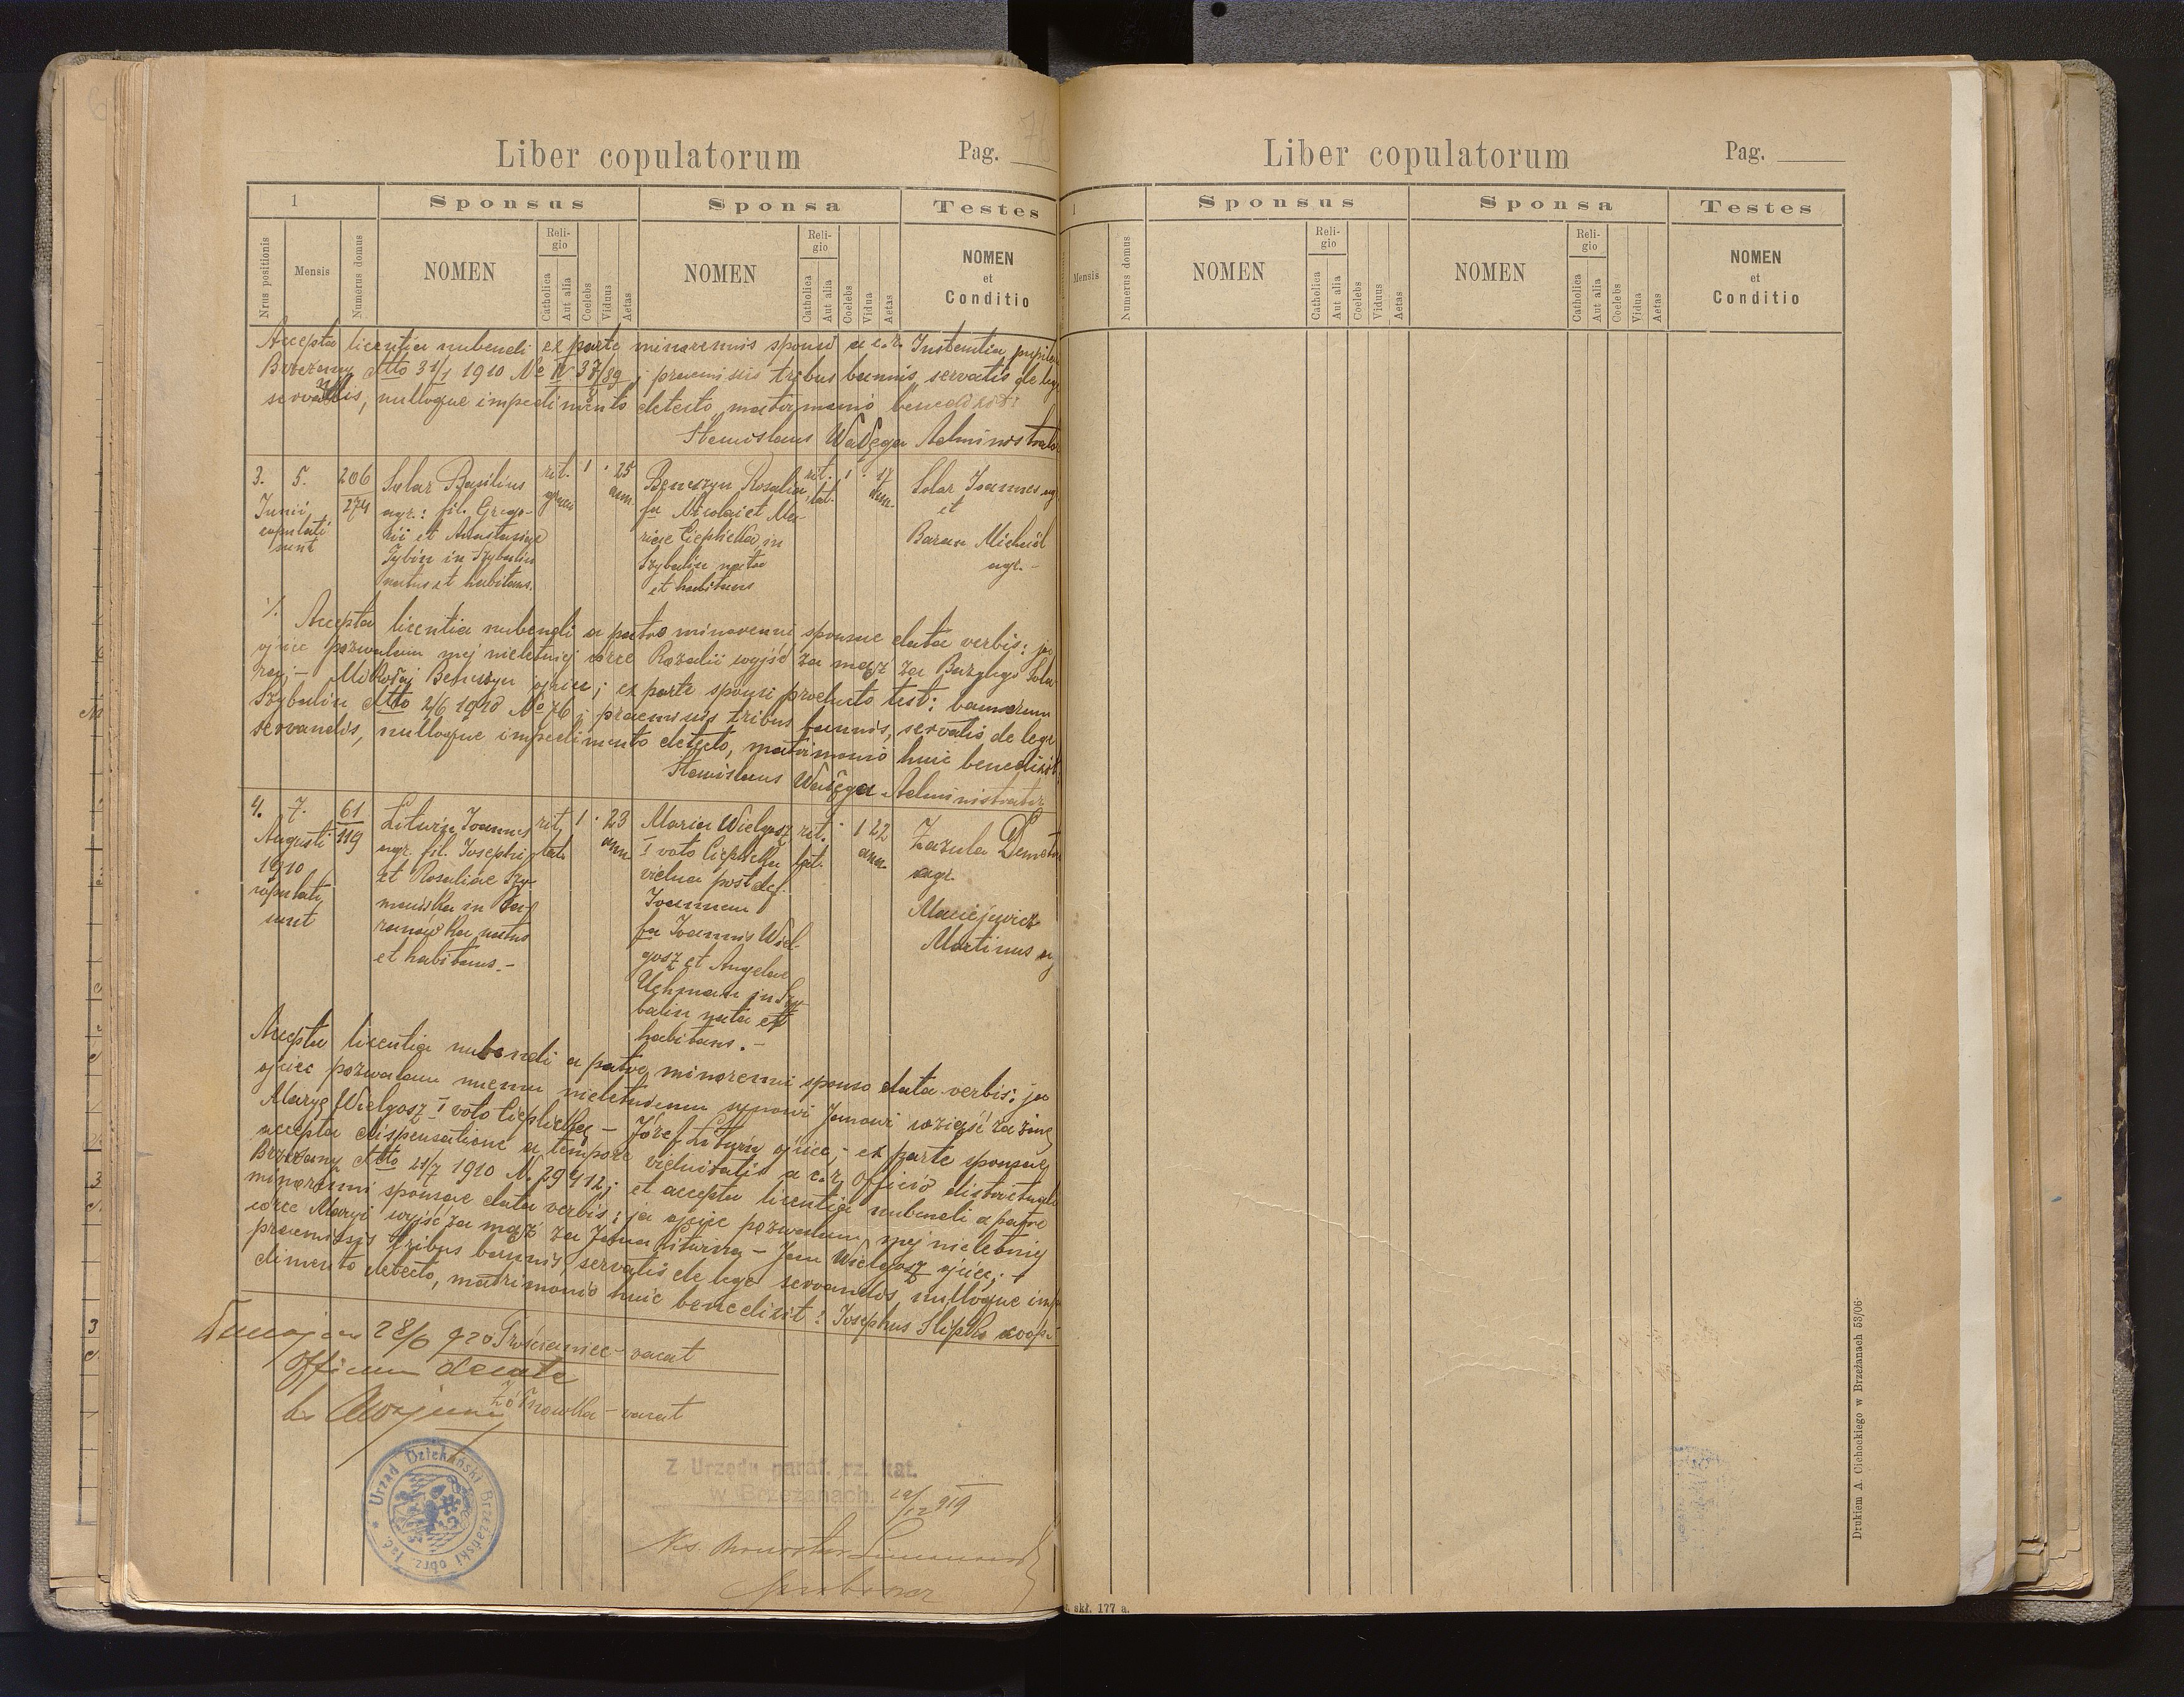 Liber copulatorum
Pag.
1
Sponsus
Sponsa
Testes
Nrus positionis
Mensis
Numerus domus
NOMEN
Religio
Catholica
Aut alia
Coelebs
Viduus
Aetas
NOMEN
Religio
Catholica
Aut alia
Coelebs
Vidua
Aetas
NOMEN
et
Conditio
Accepta licentia nubendi ex parte minorennis sponsi a c.r. Instantia
Brzeżany dtto 31/1 1910 No IV 37/89; praemissis tribus bannis, servatis de lege
servandis, nulloque impedimento detecto matrimonio benedixit:
Stanislaus Wałęga Administrator
3. 5. 206 Solar Basilius rit. 1 · 25 Beneszyn Rosalia rit. 1 · 17 Solar Joannes
Junii 274 agr.: fil. Grego- graeci ann. fa Nicolai et Ma- lat. ann. et
copulati rii et Anastasiae riae Cieplicka in Baran Michael
sunt Zybin in Szybalin Szybalin nata agr. -
natus et habitans. et habitans
Accepta licentia nubendi a patre minorenni sponsae data verbis: ja
ojciec pozwalam mej nieletniej córce Rozalii wyjść za mąż za Bazylego Sola-
Mikołaj Beneszyn ojciec; ex parte sponsi producto test: bannorum
Szybalin dtto 2/6 1910 No 76; praemissis tribus bannis, servatis de lege
servandis, nulloque impedimento detecto, matrimonio huic benedixit:
Stanislaus Wałęga Administrator
4. 7. 61 Litwin Joannes rit. 1 · 23 Maria Wielgosz rit. · 1 22 Zazula
Augusti 119 agr. fil. Josephi lat. ann. I voto Cieplicka lat. ann. agr.
1910 et Rosaliae Szy- vidua post def. Maciejewicz
copulati mańska in Ba- Joannem Martinus
sunt ranówka natus fa Joannis Wiel-
et habitans. - gosz et Angelae
Uchman in Szy-
balin nata et
habitans. -
Accepta licentia nubendi a patre minorenni sponso data verbis: ja
ojciec pozwalam memu nieletniemu synowi Janowi wziąść za żonę
Maryę Wielgosz I voto Cieplicką - Józef Litwin ojciec; - ex parte sponsae
accepta dispensatione a tempore viduitatis a c.r. Officio districtuali
Brzeżany dtto 21/7 1910 N. 29412; et accepta licentia nubendi a patre
minorenni sponsae data verbis: ja ojciec pozwalam mej nieletniej
córce Maryi wyjść za mąż za Jana Litwina - Jan Wielgosz ojciec; -
praemissis tribus bannis, servatis de lege servandis, nulloque impe-
dimento detecto, matrimonio huic benedixit: Josephus Slipko coop.
28/6 920 Trościaniec - vacat
Officium
Żółnówka - vacat
Urząd Dziekański Brzeżański obrz. łać.
Z Urzędu paraf. rz. kat.
w Brzeżanach. 29/12 919
Liber copulatorum
Pag.
1
Sponsus
Sponsa
Testes
Mensis
Numerus domus
NOMEN
Religio
Catholica
Aut alia
Coelebs
Viduus
Aetas
NOMEN
Religio
Catholica
Aut alia
Coelebs
Vidua
Aetas
NOMEN
et
Conditio
Drukiem A. Cichockiego w Brzeżanach 53/06·
skł. 177 a.